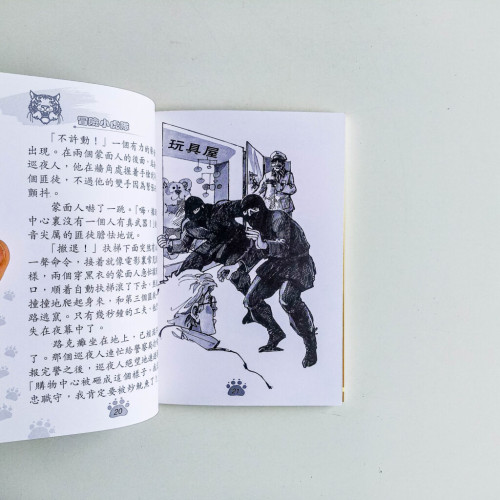 冒險小虎隊
「不許動！」一個有力的
出現。在兩個蒙面人的後面，
巡夜人，他在牆角處握着手槍
個匪徒，不過他的雙手因為
顫抖。
蒙面人嚇了一跳。「嗨，
中心裏沒有一個人有真武器！
音尖厲的匪徒膽怯地說。
「撤退！」扶梯下面突然
一聲命令，接着就像電影裏常
樣，兩個穿黑衣的蒙面人急忙
口，順着自動扶梯滾了下去，
撞撞地爬起身來，和第三個匪
路逃竄。只有幾秒鐘的工夫，
失在夜幕中了。
路克癱坐在地上，已經
了。那個巡夜人連忙給警察局
報完警之後，巡夜人絕望地
「購物中心被砸成這個樣子，
忠職守，我肯定要被炒魷魚了！
20
玩具屋
21